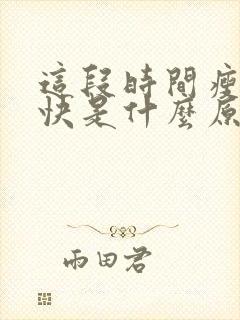 這段時間瘦
快是什麼原
雨田君